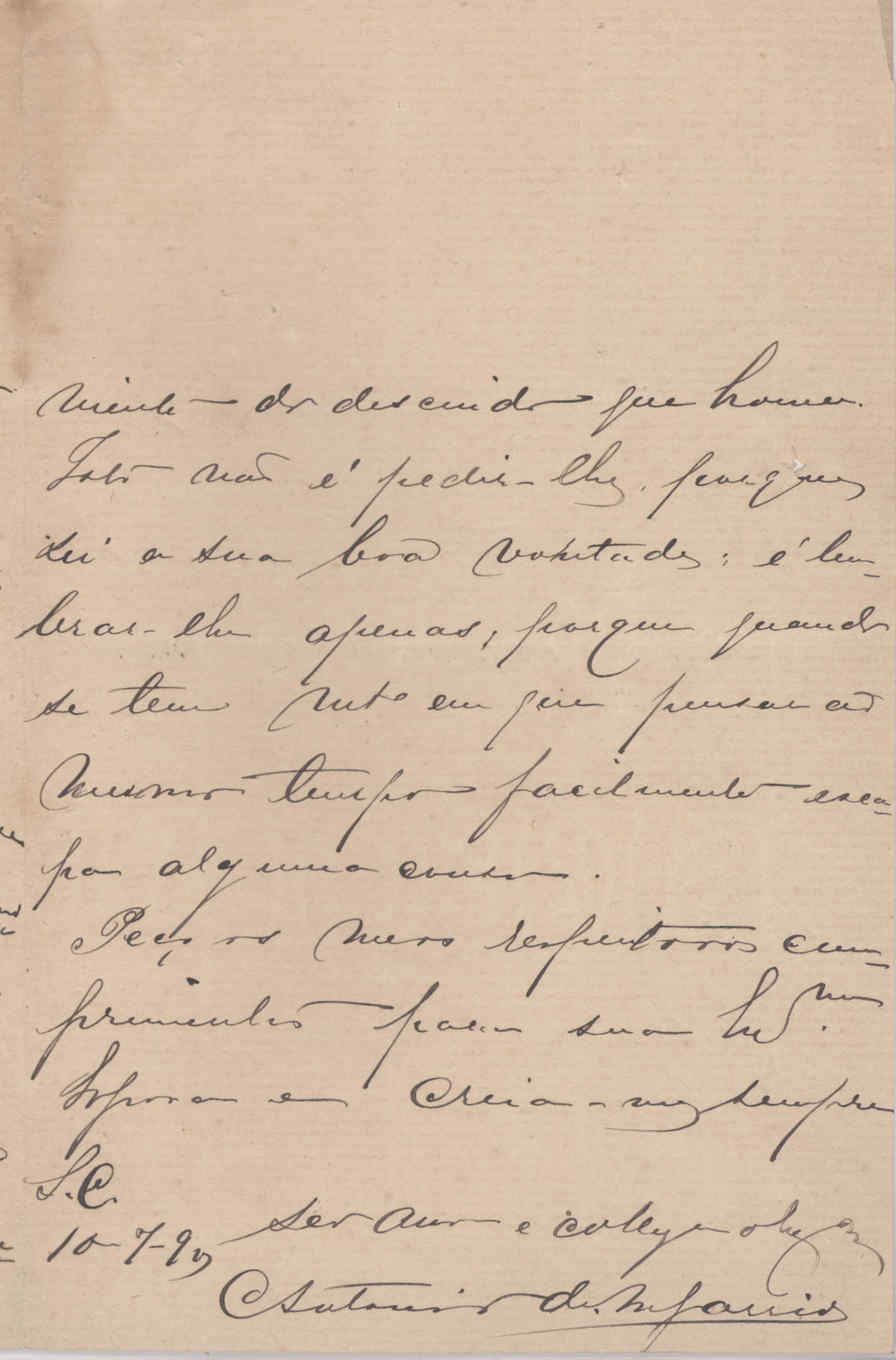 mente do descuido que houve.
Isto não é pedir-lhe, porque
sei a sua boa vontade; é lem-
brar-lhe apenas, porque quando
se tem mto em que pensar ao
mesmo tempo facilmente esca-
pa alguma cousa.
Peço os meus respeitosos cum-
primentos para sua
Esposa e creia-me sempre
S.C.
seu amo e collega obgdo
10-7-9
Antonio de